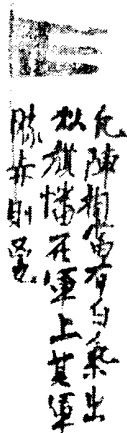 凡陣相當有白氣出
似旗幡在軍上其軍
勝赤則